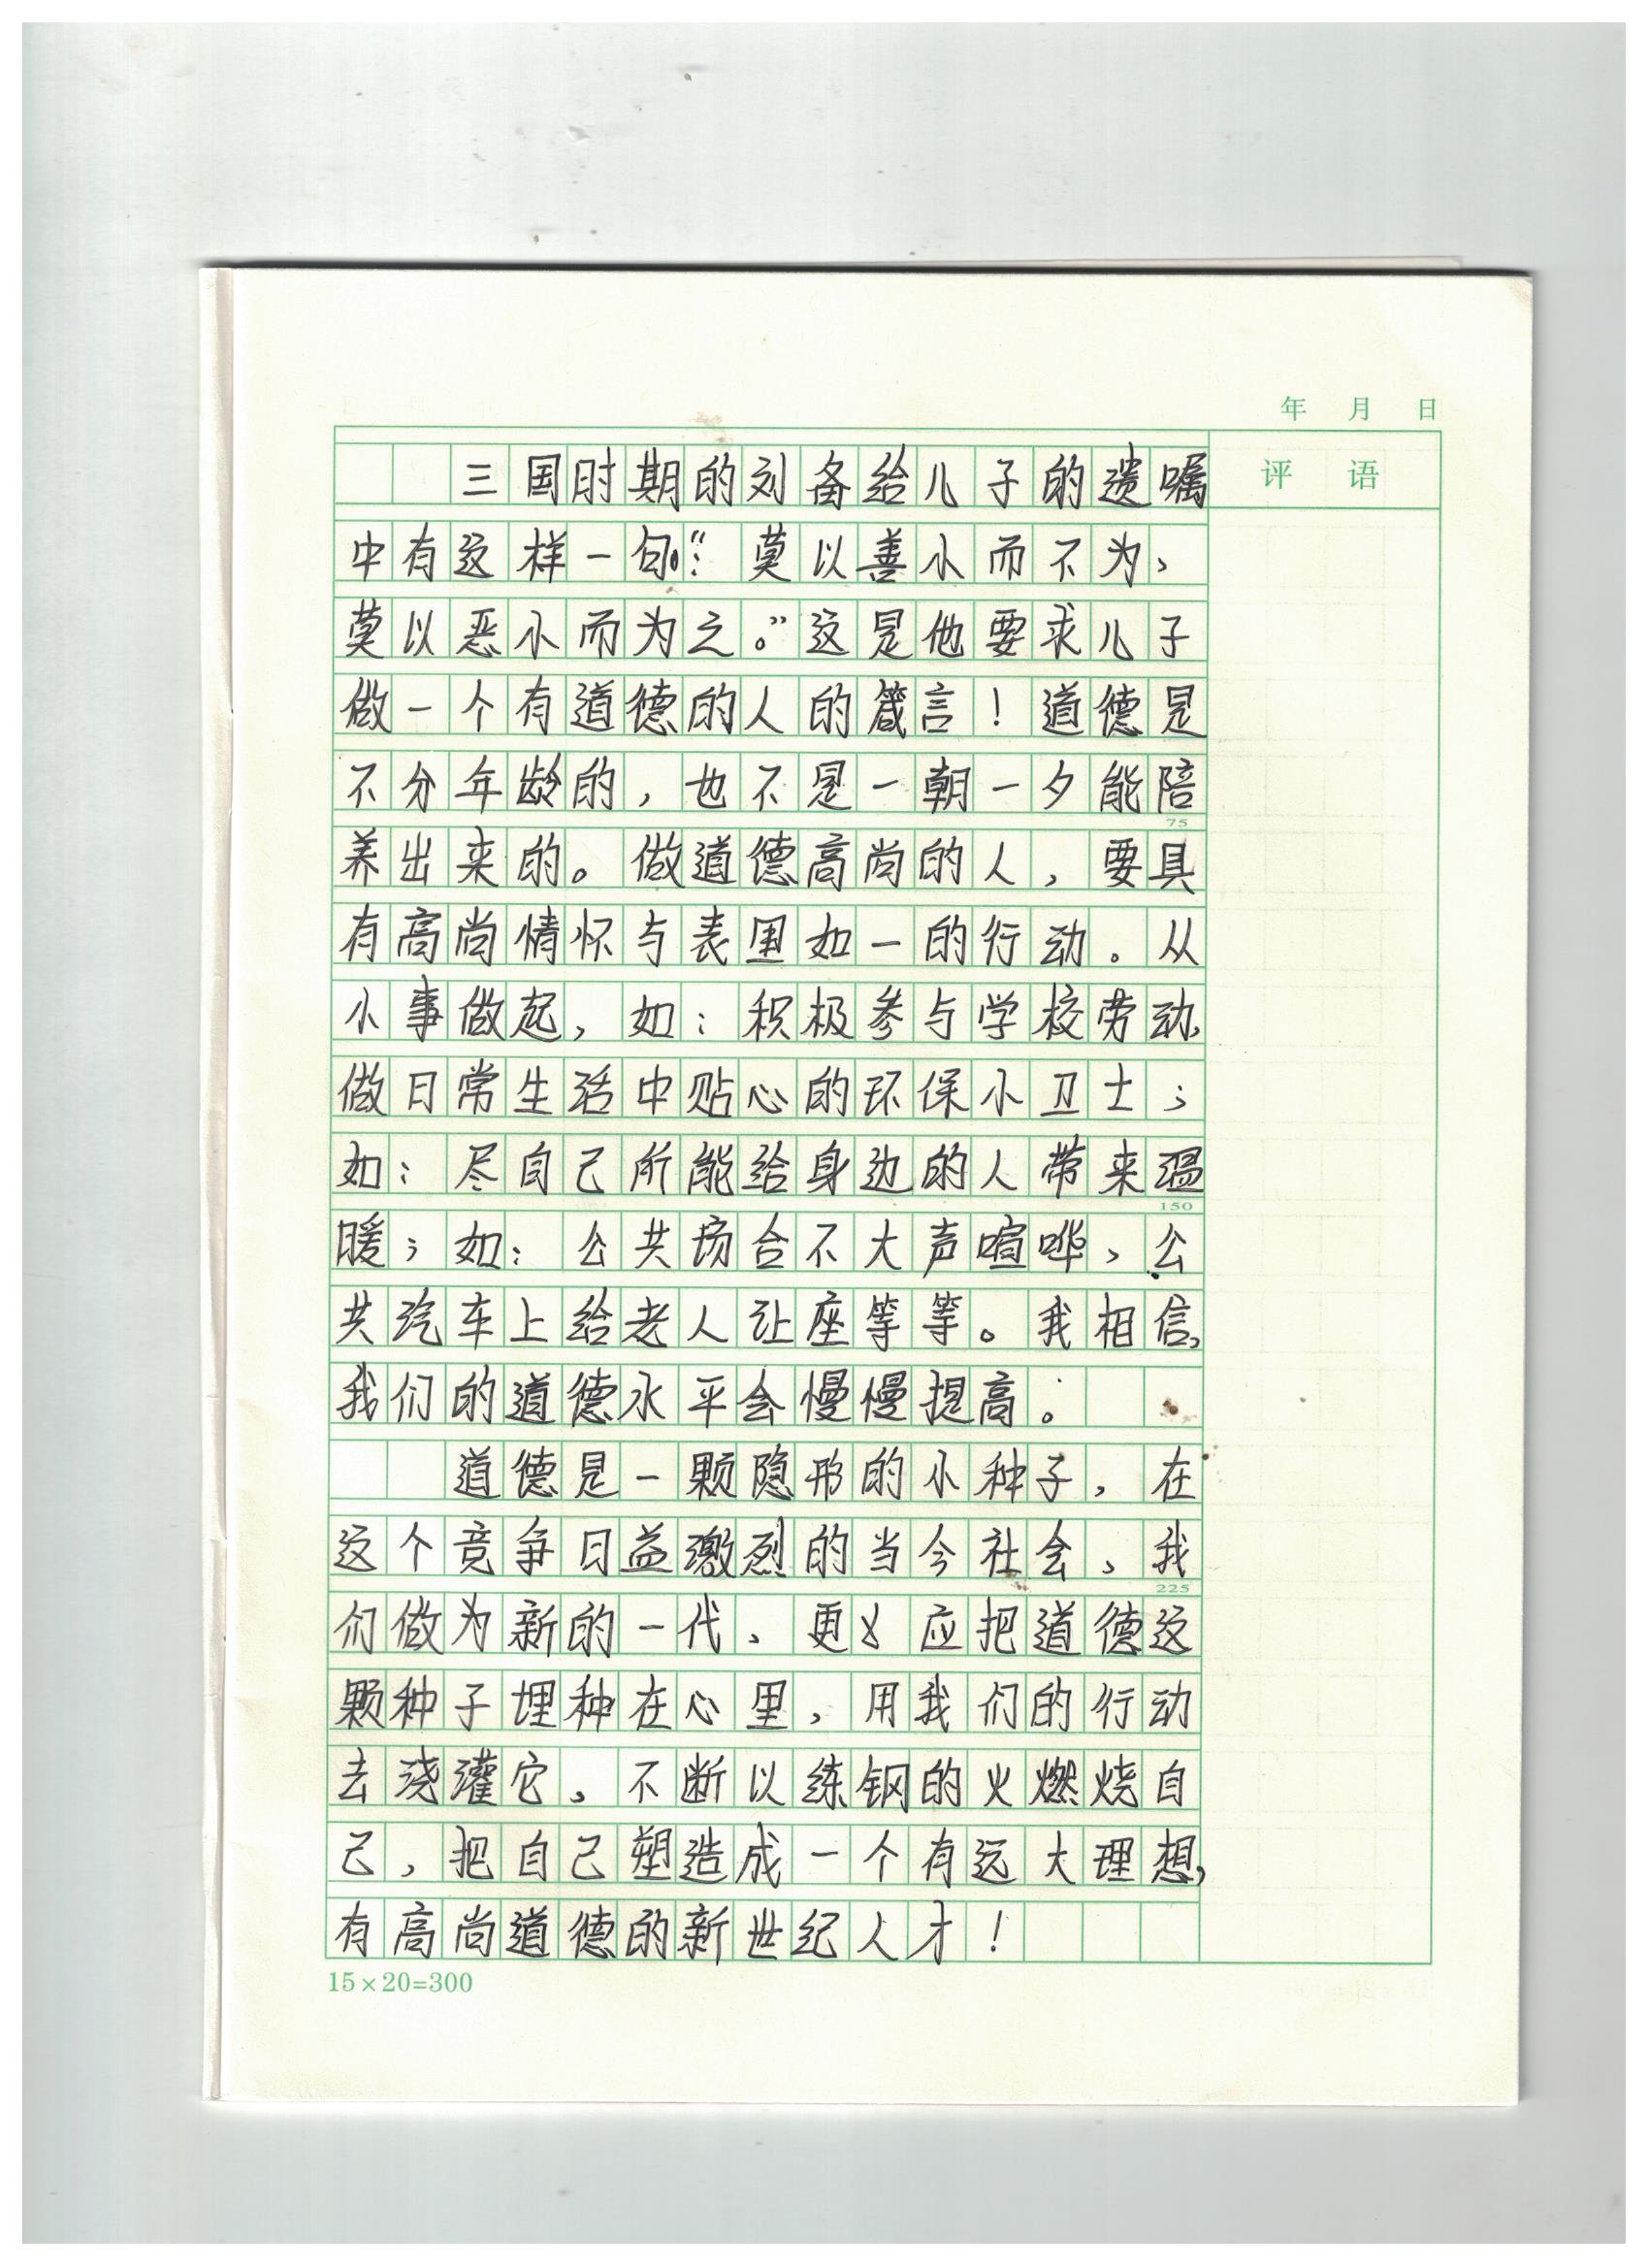 年 月 日
评 语
三国时期的刘备给儿子的遗嘱
中有这样一句:“莫以善小而不为，
莫以恶小而为之。”这是他要求儿子
做一个有道德的人的箴言！道德是
不分年龄的，也不是一朝一夕能陪
75
养出来的。做道德高尚的人，要具
有高尚情怀与表里如一的行动。从
小事做起，如：积极参与学校劳动，
做日常生活中贴心的环保小卫士；
如：尽自己所能给身边的人带来温
150
暖；如：公共场合不大声喧哗，公
共汽车上给老人让座等等。我相信，
我们的道德水平会慢慢提高。
道德是一颗隐形的小种子，在
这个竞争日益激烈的当今社会，我
225
们做为新的一代，更应把道德这
颗种子埋种在心里，用我们的行动
去浇灌它。不断以练钢的火燃烧自
己，把自己塑造成一个有远大理想，
有高尚道德的新世纪人才！
15×20=300